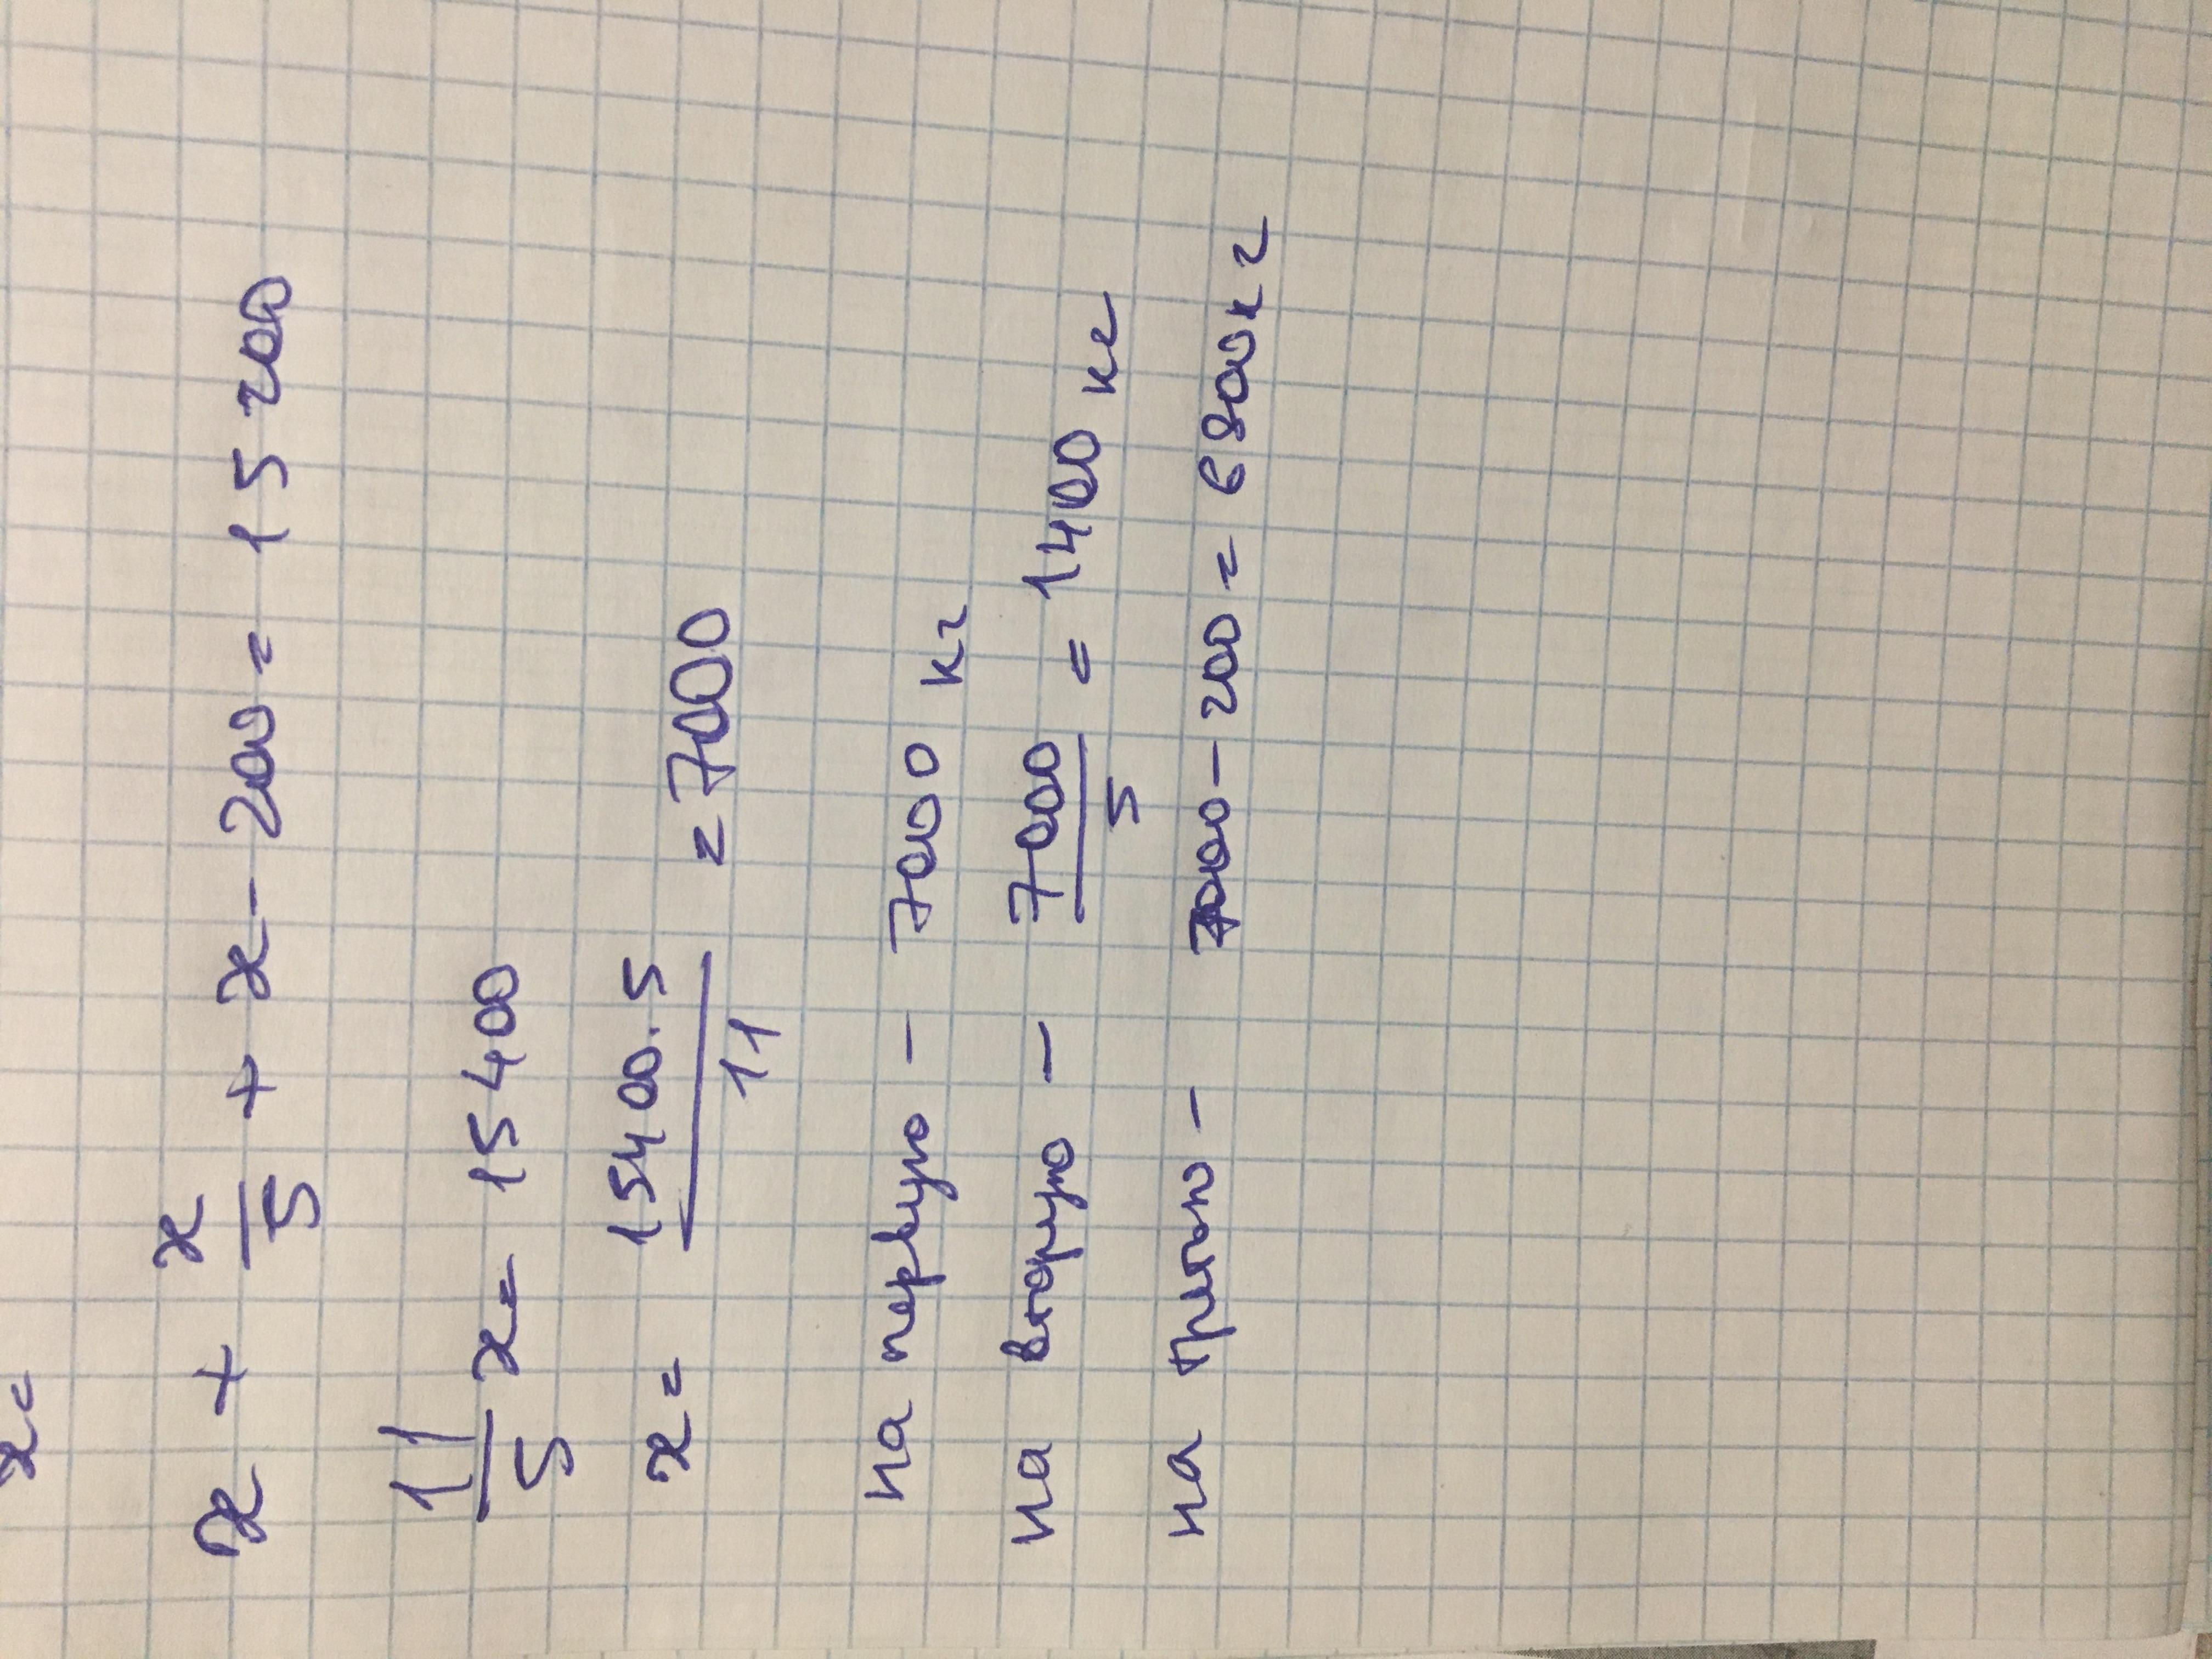 x=
x + x/5 + x - 200 = 15 200
11/5 x = 15 400
x = 15400·5/11 = 7000
на первую - 7000 кг
на вторую - 7000/5 = 1400 кг
на третью - 7000 - 200 = 6800 кг